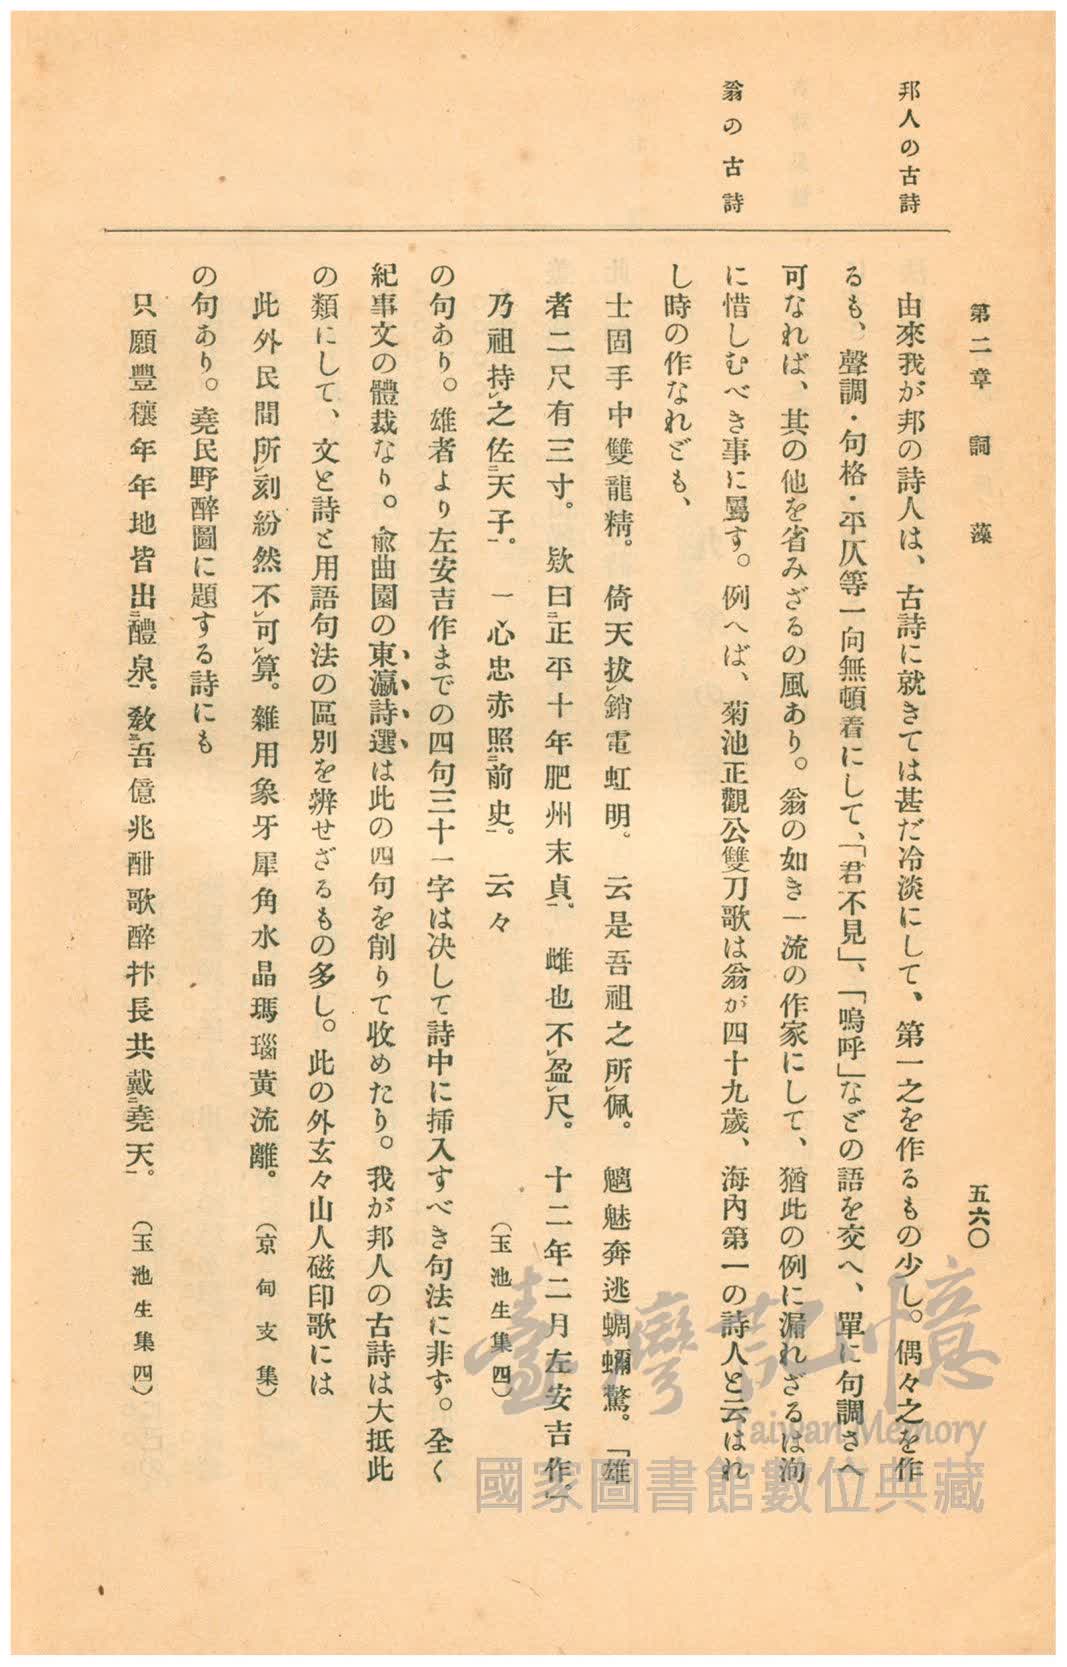 第二章　詞　藻
五六〇
邦人の古詩
翁の古詩
由來我が邦の詩人は、古詩に就きては甚だ冷淡にして、第一之を作るもの少し。偶々之を作
るも、聲調・句格・平仄等一向無頓着にして、「君不見」、「嗚呼」などの語を交へ、單に句調さへ
可なれば、其の他を省みざるの風あり。翁の如き一流の作家にして、猶此の例に漏れざるは洵
に惜しむべき事に屬す。例へば、菊池正觀公雙刀歌は翁が四十九歲、海內第一の詩人と云はれ
し時の作なれども、
士固手中雙龍精。倚天拔レ銷電虹明。云是吾祖之所レ佩。魑魅奔逃蜩蠝驚。「雄
者二尺有三寸。欵曰二正平十年肥州末貞一。雌也不レ盈レ尺。十二年二月左安吉作。」
乃祖持レ之佐二天子一。一心忠赤照二前史一。云々
（玉池生集四）
の句あり。雄者より左安吉作までの四句三十一字は决して詩中に揷入すべき句法に非ず。全く
紀事文の體裁なり。兪曲園の東瀛詩選は此の四句を削りて收めたり。我が邦人の古詩は大抵此
の類にして、文と詩と用語句法の區別を辨せざるもの多し。此の外玄々山人磁印歌には
此外民間所レ刻紛然不レ可レ算。雜用象牙犀角水晶瑪瑙黃流離。
（京甸支集）
の句あり。堯民野醉圖に題する詩にも
只願豐穰年年地皆出二醴泉一。敎二吾億兆酣歌醉抃長共戴二堯天一。
（玉池生集四）
臺灣記憶
Taiwan Memory
國家圖書館數位典藏